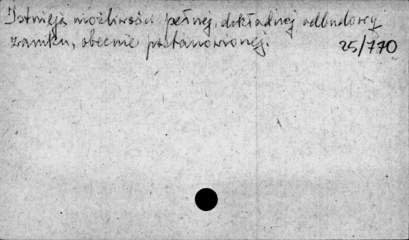 Istnieje możliwość pełnej, dokładnej odbudowy
zamku, obecnie postanowionej.
25/770